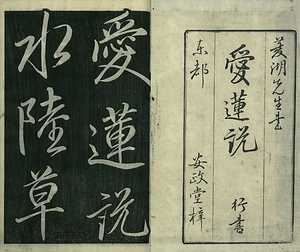 菱湖先生書
愛蓮説 行書
東都 安政堂梓
愛蓮説
水陸草